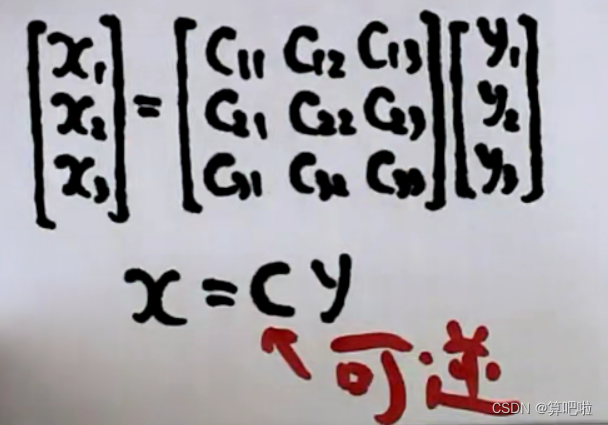 [x₁ x₂ x₃] = [C₁₁ C₁₂ C₁₃ C₂₁ C₂₂ C₂₃ C₃₁ C₃₂ C₃₃] [y₁ y₂ y₃]
x = C y
可逆
CSDN @算吧啦